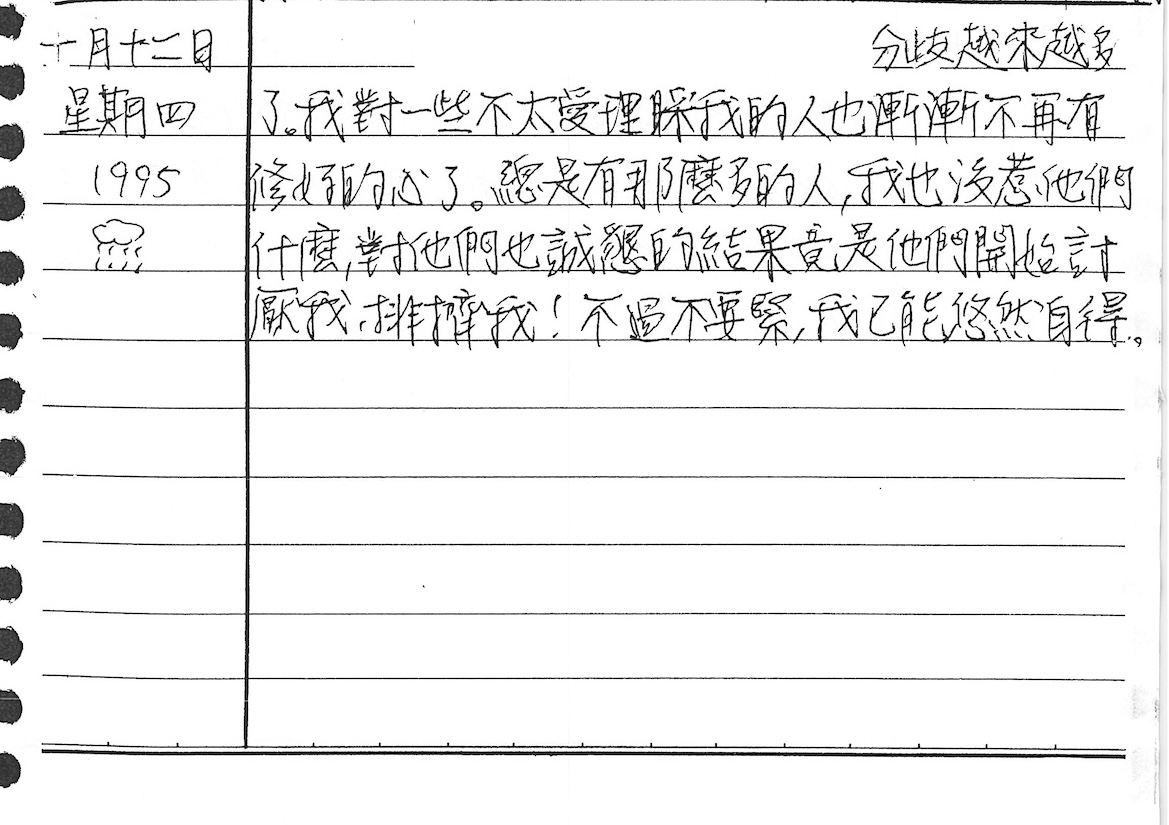 十月十二日
星期四
1995
分歧越來越多
了。我對一些不太愛理睬我的人也漸漸不再有
修好的心了。總是有那麼多的人,我也沒惹他們
什麼,對他們也誠懇的結果竟是他們開始討
厭我、排擠我!不過不要緊,我已能悠然自得。